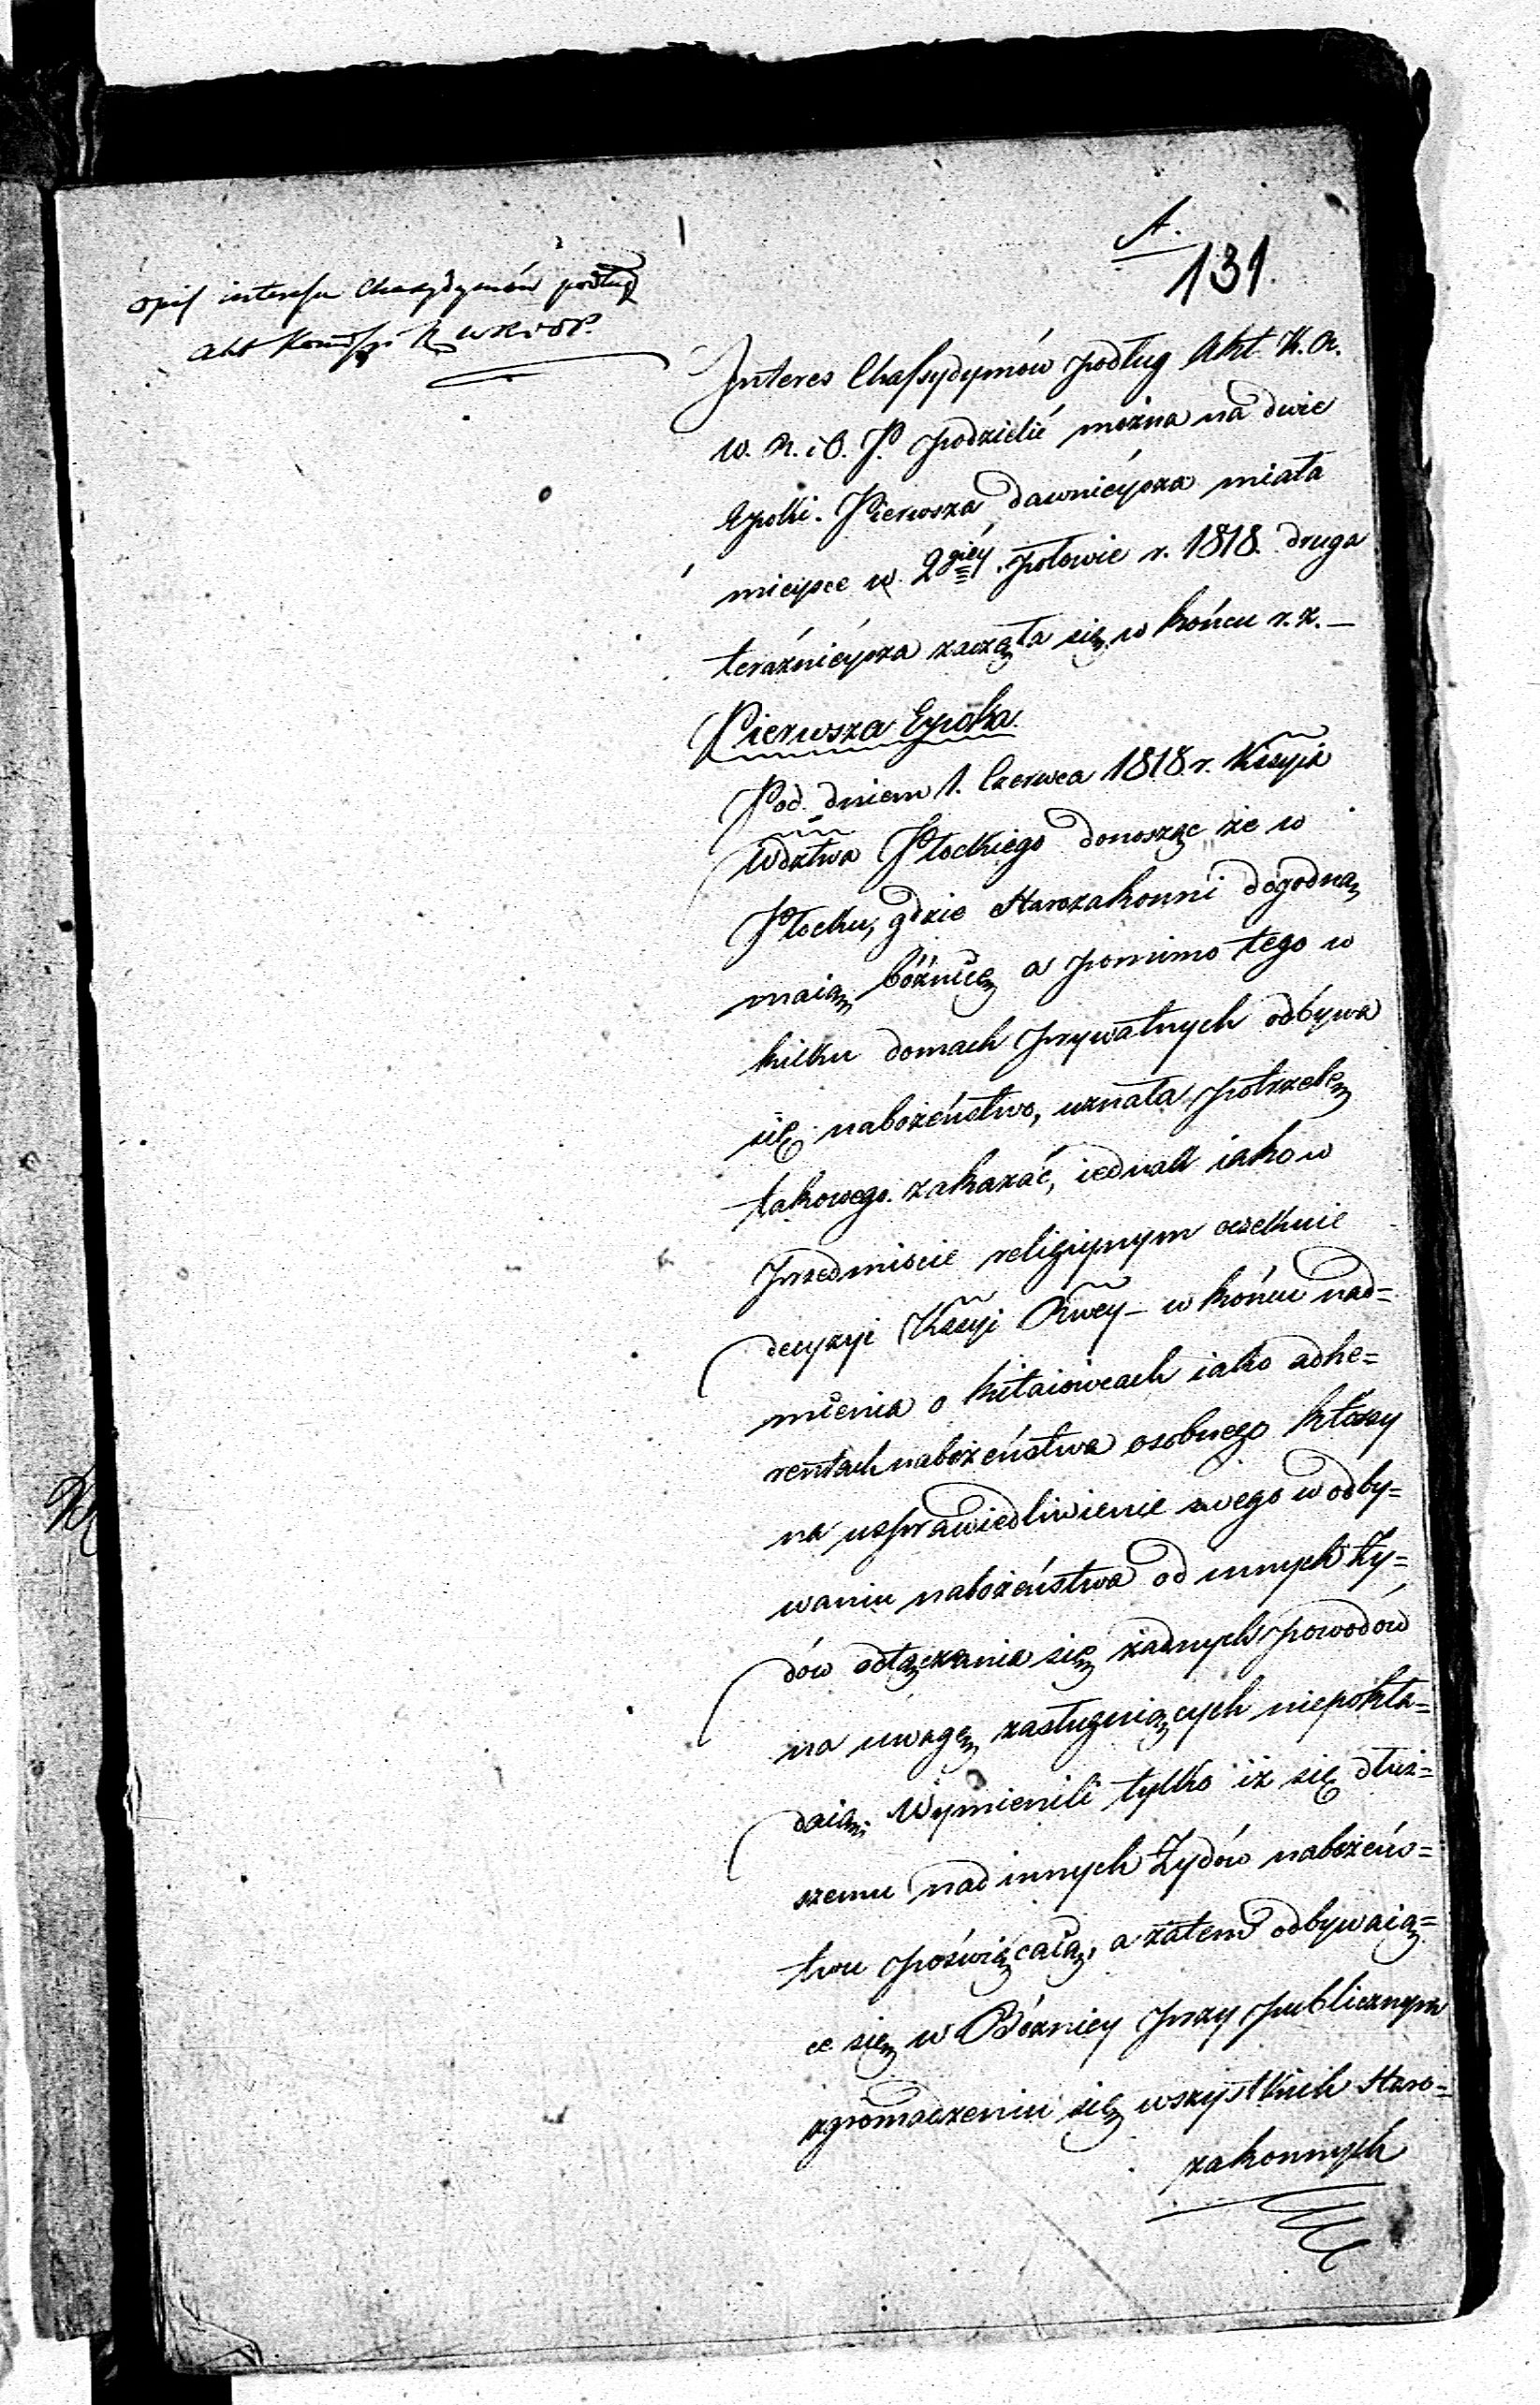 A.
131.
Opis interesu Chassydymów podług
akt Kommssyi R. W R i O P.
Interes Chassydymów podług Akt K. R.
W. R. i O. P. podzielić można na dwie
Epoki. Pierwsza dawnieysza miała
mieysce w 2giéy połowie r. 1818. druga
teraźnieysza zaczęła się w końcu r. z. –
Pierwsza Epoka.
Pod dniem 1. Czerwca 1818 r. Kssyja
Wdztwa Płockiego donosząc że w
Płocku, gdzie Starozakonni dogodną
maią bóżnicę a pomimo tego w
kilku domach prywatnych odbywa
się nabożeństwo, uznała potrzebę
takowego zakazać, iednak iako w
przedmiocie religiynym oczekuie
decyzyi Kssyi Rwey – w końcu nad=
mienia o kitaiowcach iako adhe=
rentach nabożeństwa osobnego którzy
na usprawiedliwienie swego w odby=
waniu nabożeństwa od innych Ży=
dów odłączania się żadnych powodów
na uwagę zasługuiących niepokła=
daią. Wymienili tylko iż się dłuż=
szemu nad innych Żydów nabożeńs=
twu poświęcaią, a zatem odbywaią=
ce się w Bóżnicy przy publicznym
zgromadzeniu się wszystkich Staro=
zakonnych